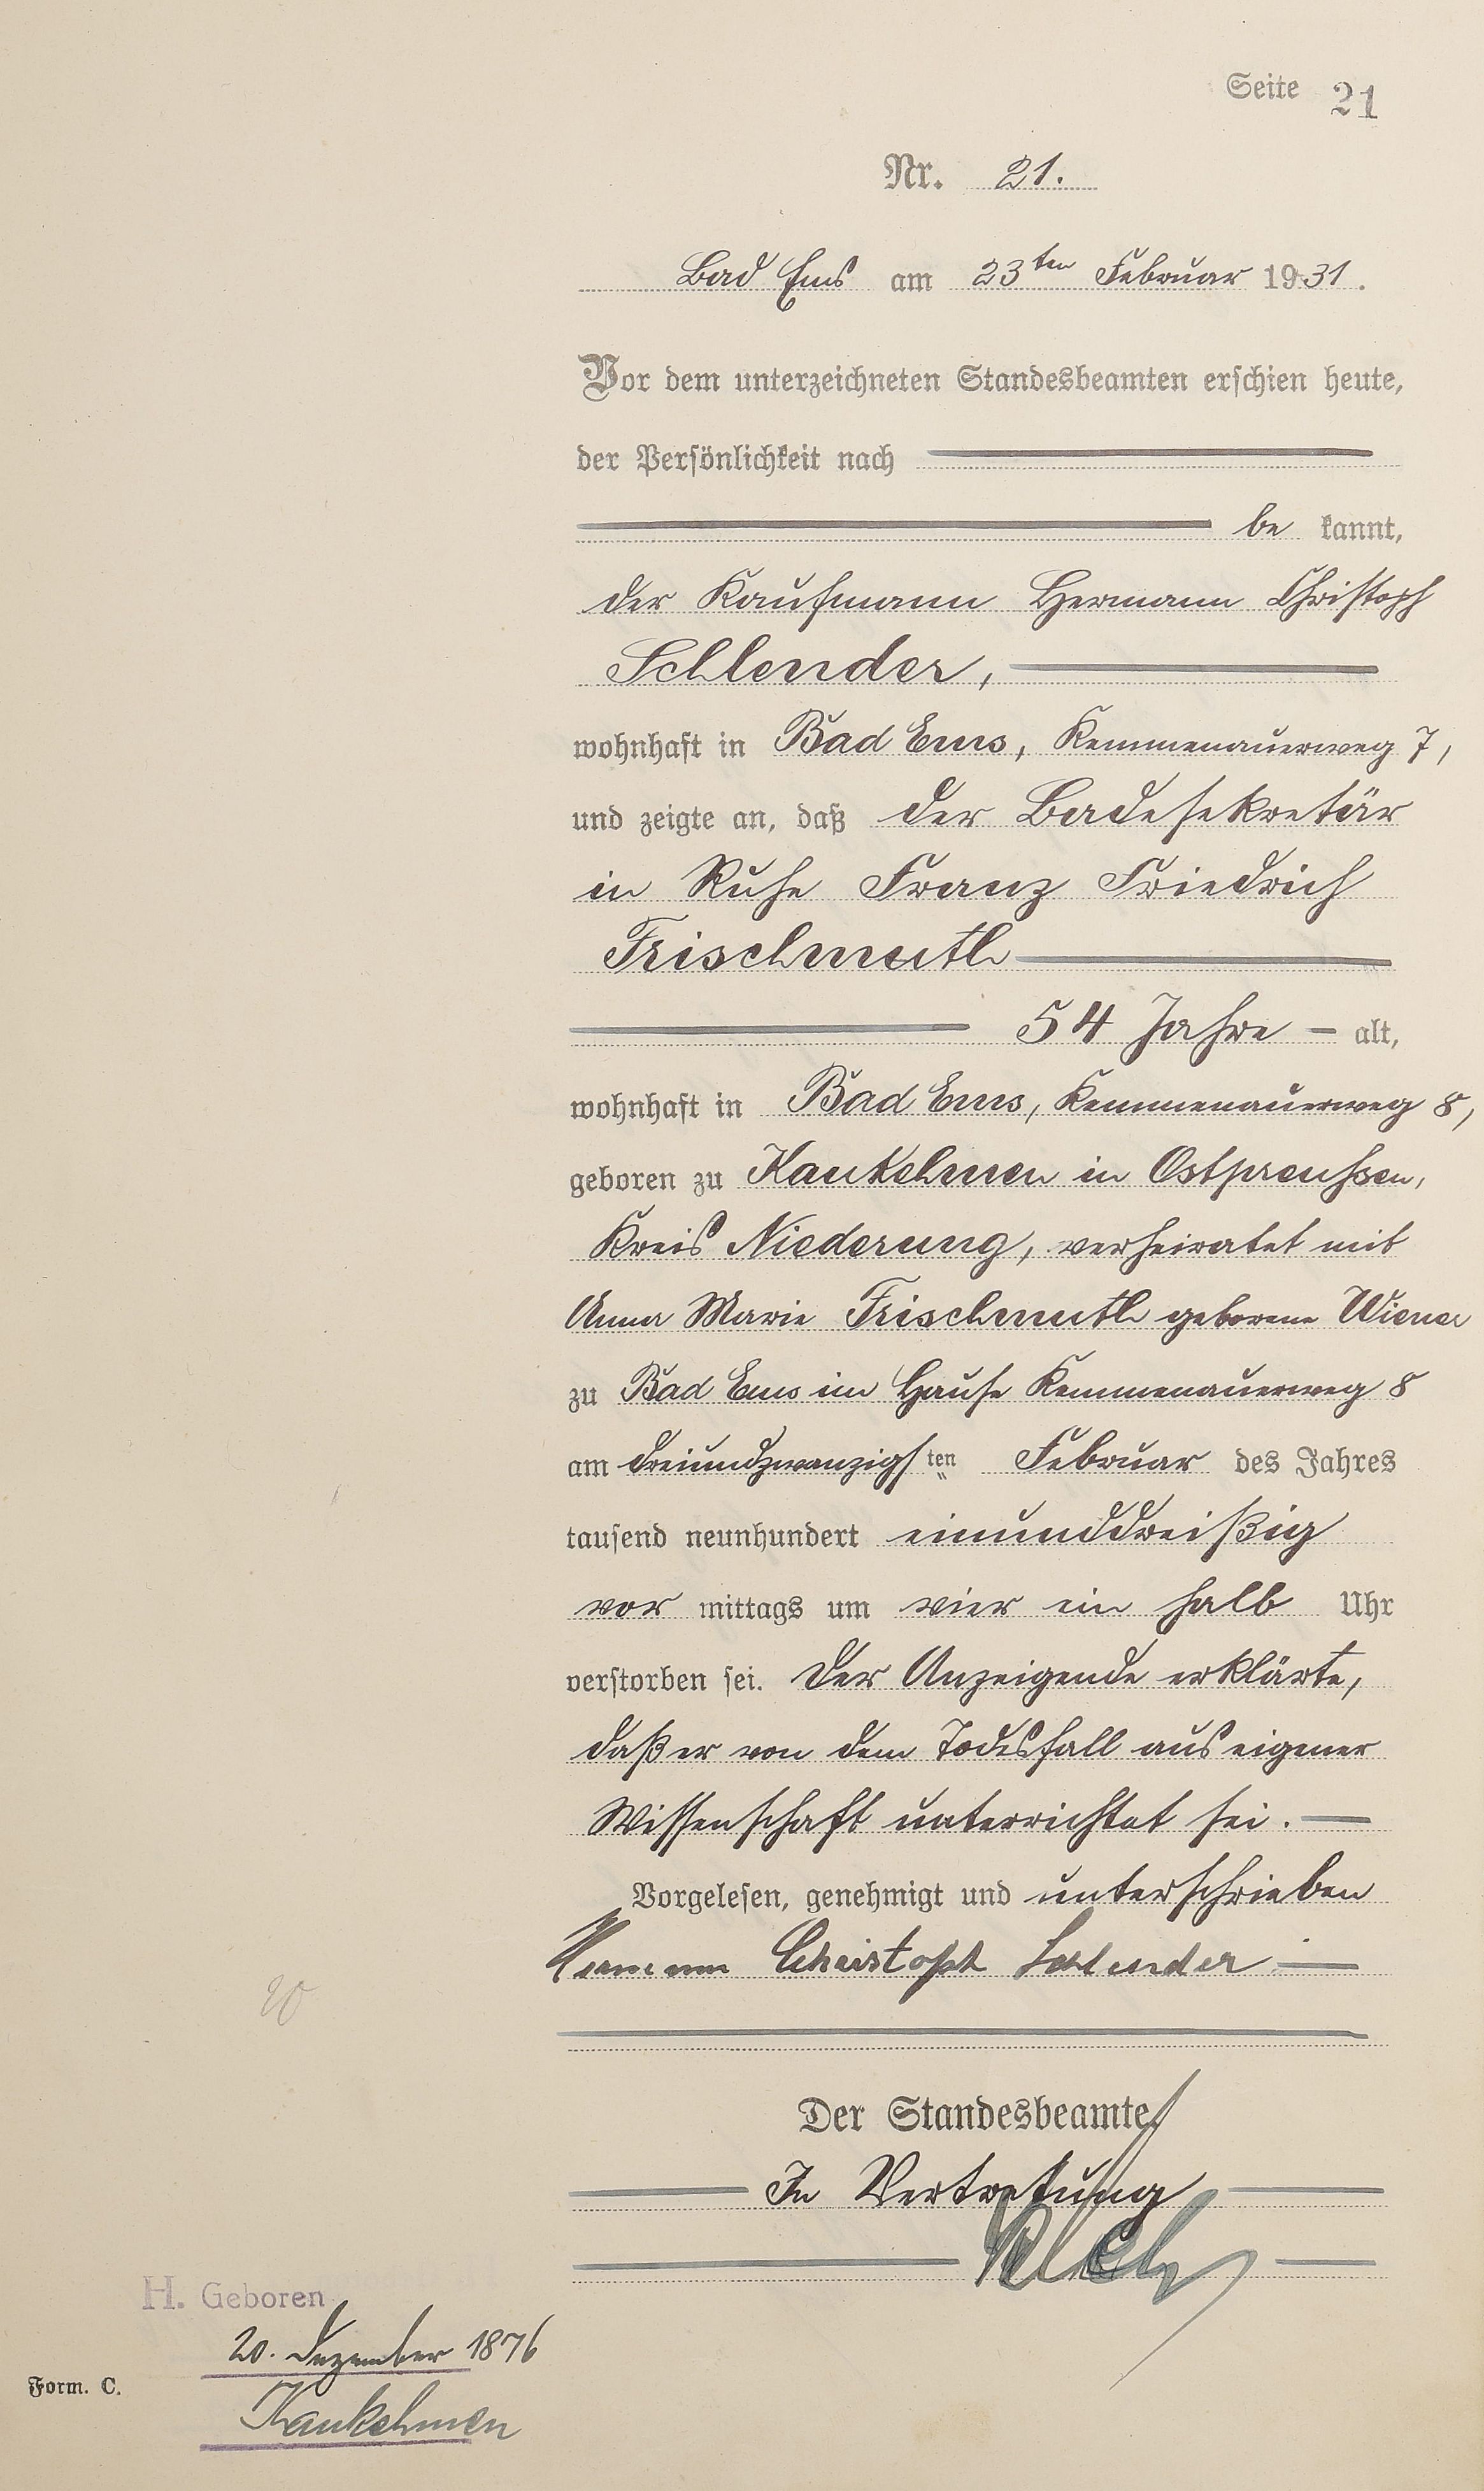 Seite 21
Nr. 21.
Bad Ems am 23ten Februar 1931.
Vor dem unterzeichneten Standesbeamten erschien heute,
der Persönlichkeit nach
be kannt,
der Kaufmann Hermann Christoph
Schlender,
wohnhaft in Bad Ems, Kemmenauerweg 7,
und zeigte an, daß der Badesekretär
in Ruhe Franz Friedrich
Frischmuth
54 Jahre - alt,
wohnhaft in Bad Ems, Kemmenauerweg 8,
geboren zu Kaukehmen in Ostpreußsen,
Kreis Niederung, verheiratet mit
Anna Marie Frischmuth geborene
zu Bad Ems im Hause Kemmenauerweg 8
am dreiundzwanzigsten Februar des Jahres
tausend neunhundert einunddreißig
vor mittags um vier ein halb Uhr
verstorben sei. Der Anzeigende erklärte,
daß er von dem Todesfall aus eigener
Wissenschaft unterrichtet sei.
Vorgelesen, genehmigt und unterschrieben
Hermann Christoph Schlender
Der Standesbeamte
In Vertretung
H. Geboren
20. Dezember 1876
Form. C.
Kaukehmen